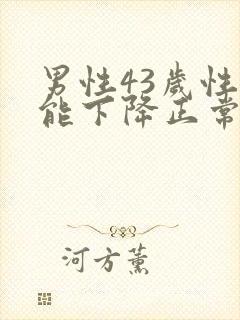 男性43歲性
能下降正常
河方薰